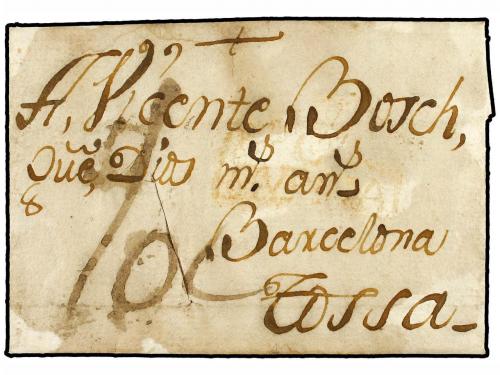 +
A, Vicente, Bosch,
Que, Dios m.s an.s
Barcelona
Tossa-